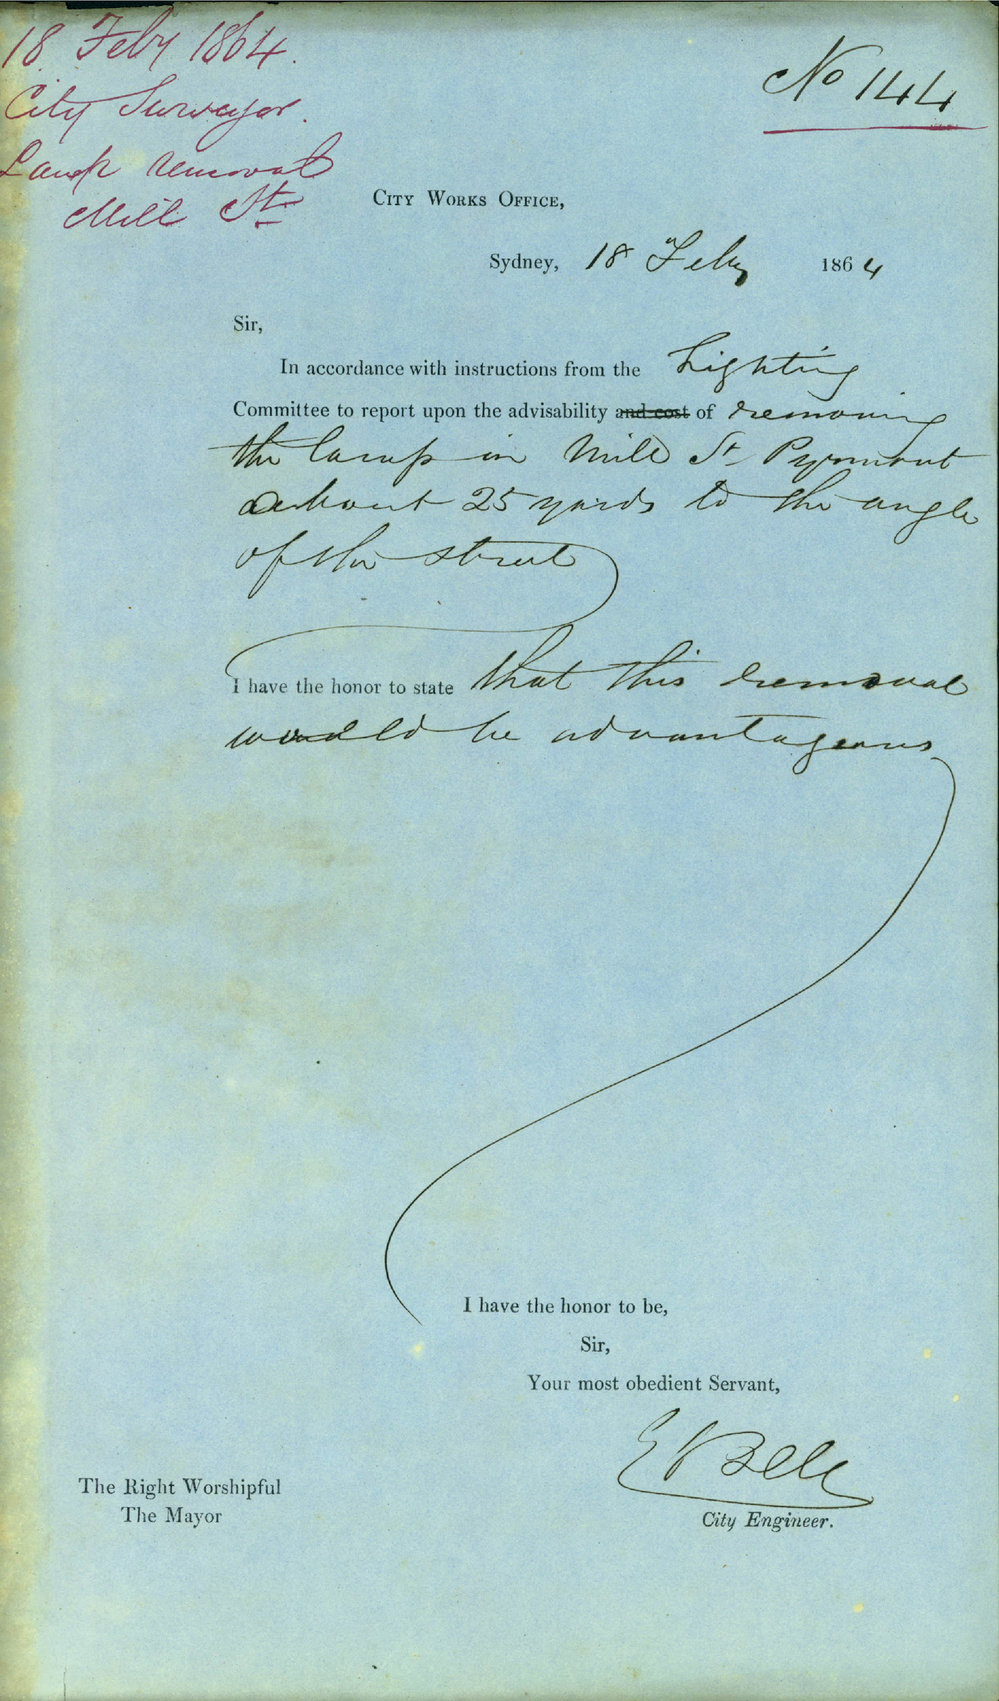 18 Feby 1864.
City Surveyor.
Lamp removal
Mill St
No 144
City Works Office,
Sydney, 18 Feby 1864
Sir,
In accordance with instructions from the Lighting
Committee to report upon the advisability and cost of removing
the lamp in Mill St Pyrmont
about 25 yards to the angle
of the street
I have the honor to state that this removal
would be advantageous
I have the honor to be,
Sir,
Your most obedient Servant,
E Bell
The Right Worshipful
The Mayor
City Engineer.